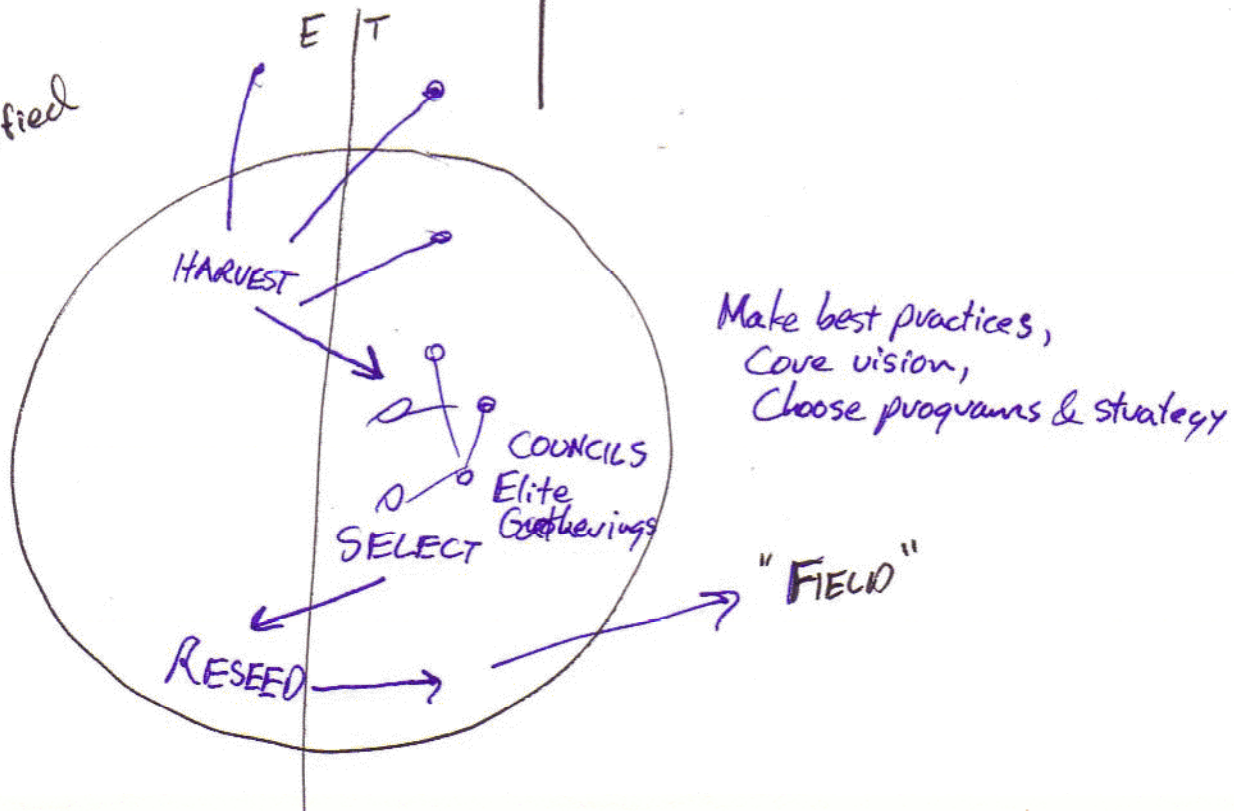 E T
fied
HARVEST
Make best practices,
Core vision,
Choose programs & strategy
COUNCILS
Elite
Gatherings
SELECT
"FIELD"
RESEED